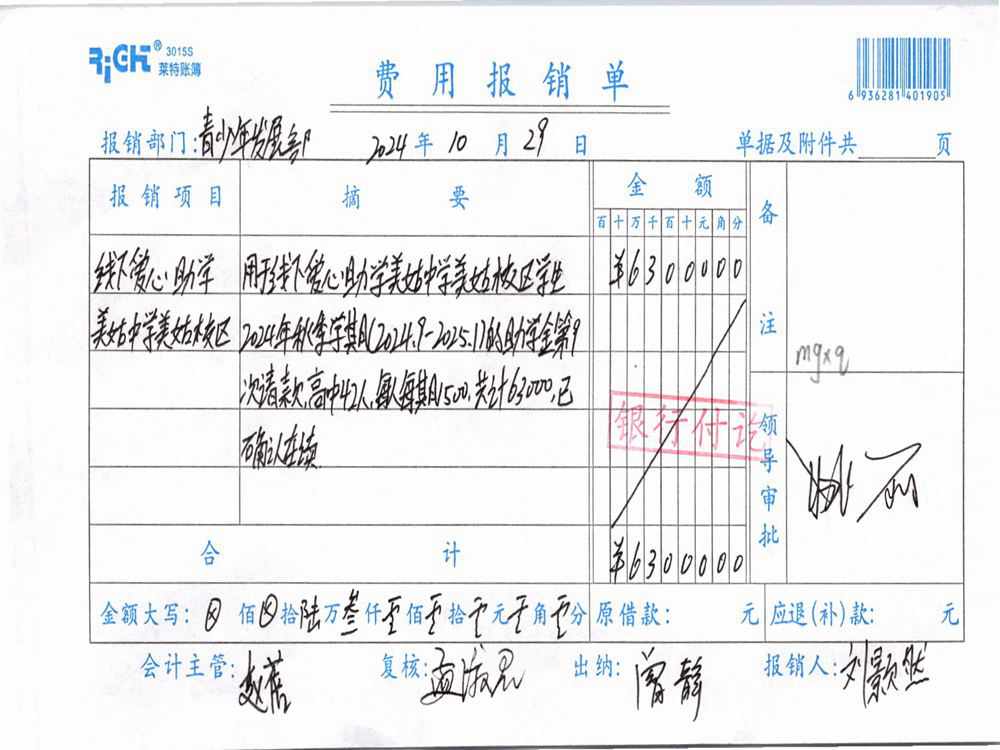 RiCH® 3015S
莱特账簿
费用报销单
6 936281 401905
报销部门:青少年发展部 2024年10月29日 单据及附件共 页
报销项目 摘要 金额 备注
百十万千百十元角分
线下爱心助学 用于线下爱心助学美姑中学美姑校区学生 ¥6300000
美姑中学美姑校区 2024年秋季学期(2024.9-2025.1)的助学金第9
次请款,高中42人,每人每期1500,共计63000,已
确认在读
mgxq
银行付讫
领导审批
合计 ¥6300000
金额大写: 佰 拾陆万叁仟零佰零拾零元零角零分 原借款: 元 应退(补)款: 元
会计主管: 复核: 出纳:曾静 报销人:刘颢然